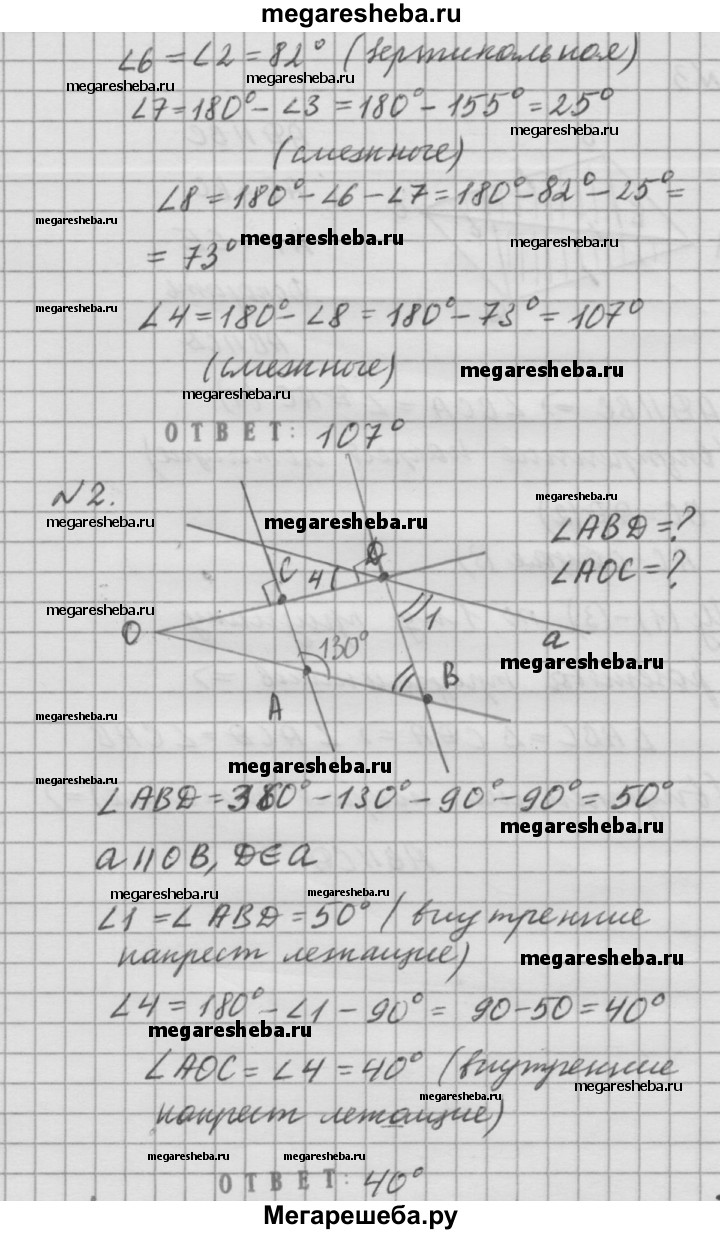 megaresheba.ru
∠6 = ∠2 = 82° (вертикальная)
megaresheba.ru
megaresheba.ru
∠7 = 180° - ∠3 = 180° - 155° = 25°
megaresheba.ru
(смежные)
∠8 = 180° - ∠6 - ∠7 = 180° - 82° - 25° =
megaresheba.ru
megaresheba.ru
megaresheba.ru
= 73°
megaresheba.ru
∠4 = 180° - ∠8 = 180° - 73° = 107°
(смежные)
megaresheba.ru
megaresheba.ru
ОТВЕТ: 107°
№2.
megaresheba.ru
megaresheba.ru
megaresheba.ru
∠ABD = ?
∠AOC = ?
D
C
4
megaresheba.ru
O
130°
1
a
megaresheba.ru
A
B
megaresheba.ru
megaresheba.ru
megaresheba.ru
∠ABD = 360° - 130° - 90° - 90° = 50°
megaresheba.ru
a || OB, D ∈ a
megaresheba.ru
megaresheba.ru
∠1 = ∠ABD = 50° (внутренние
напрест лежащие)
megaresheba.ru
∠4 = 180° - ∠1 - 90° = 90 - 50 = 40°
megaresheba.ru
∠AOC = ∠4 = 40° (внутренние
megaresheba.ru
напрест лежащие)
megaresheba.ru
megaresheba.ru
ОТВЕТ: 40°
Мегарешеба.ру